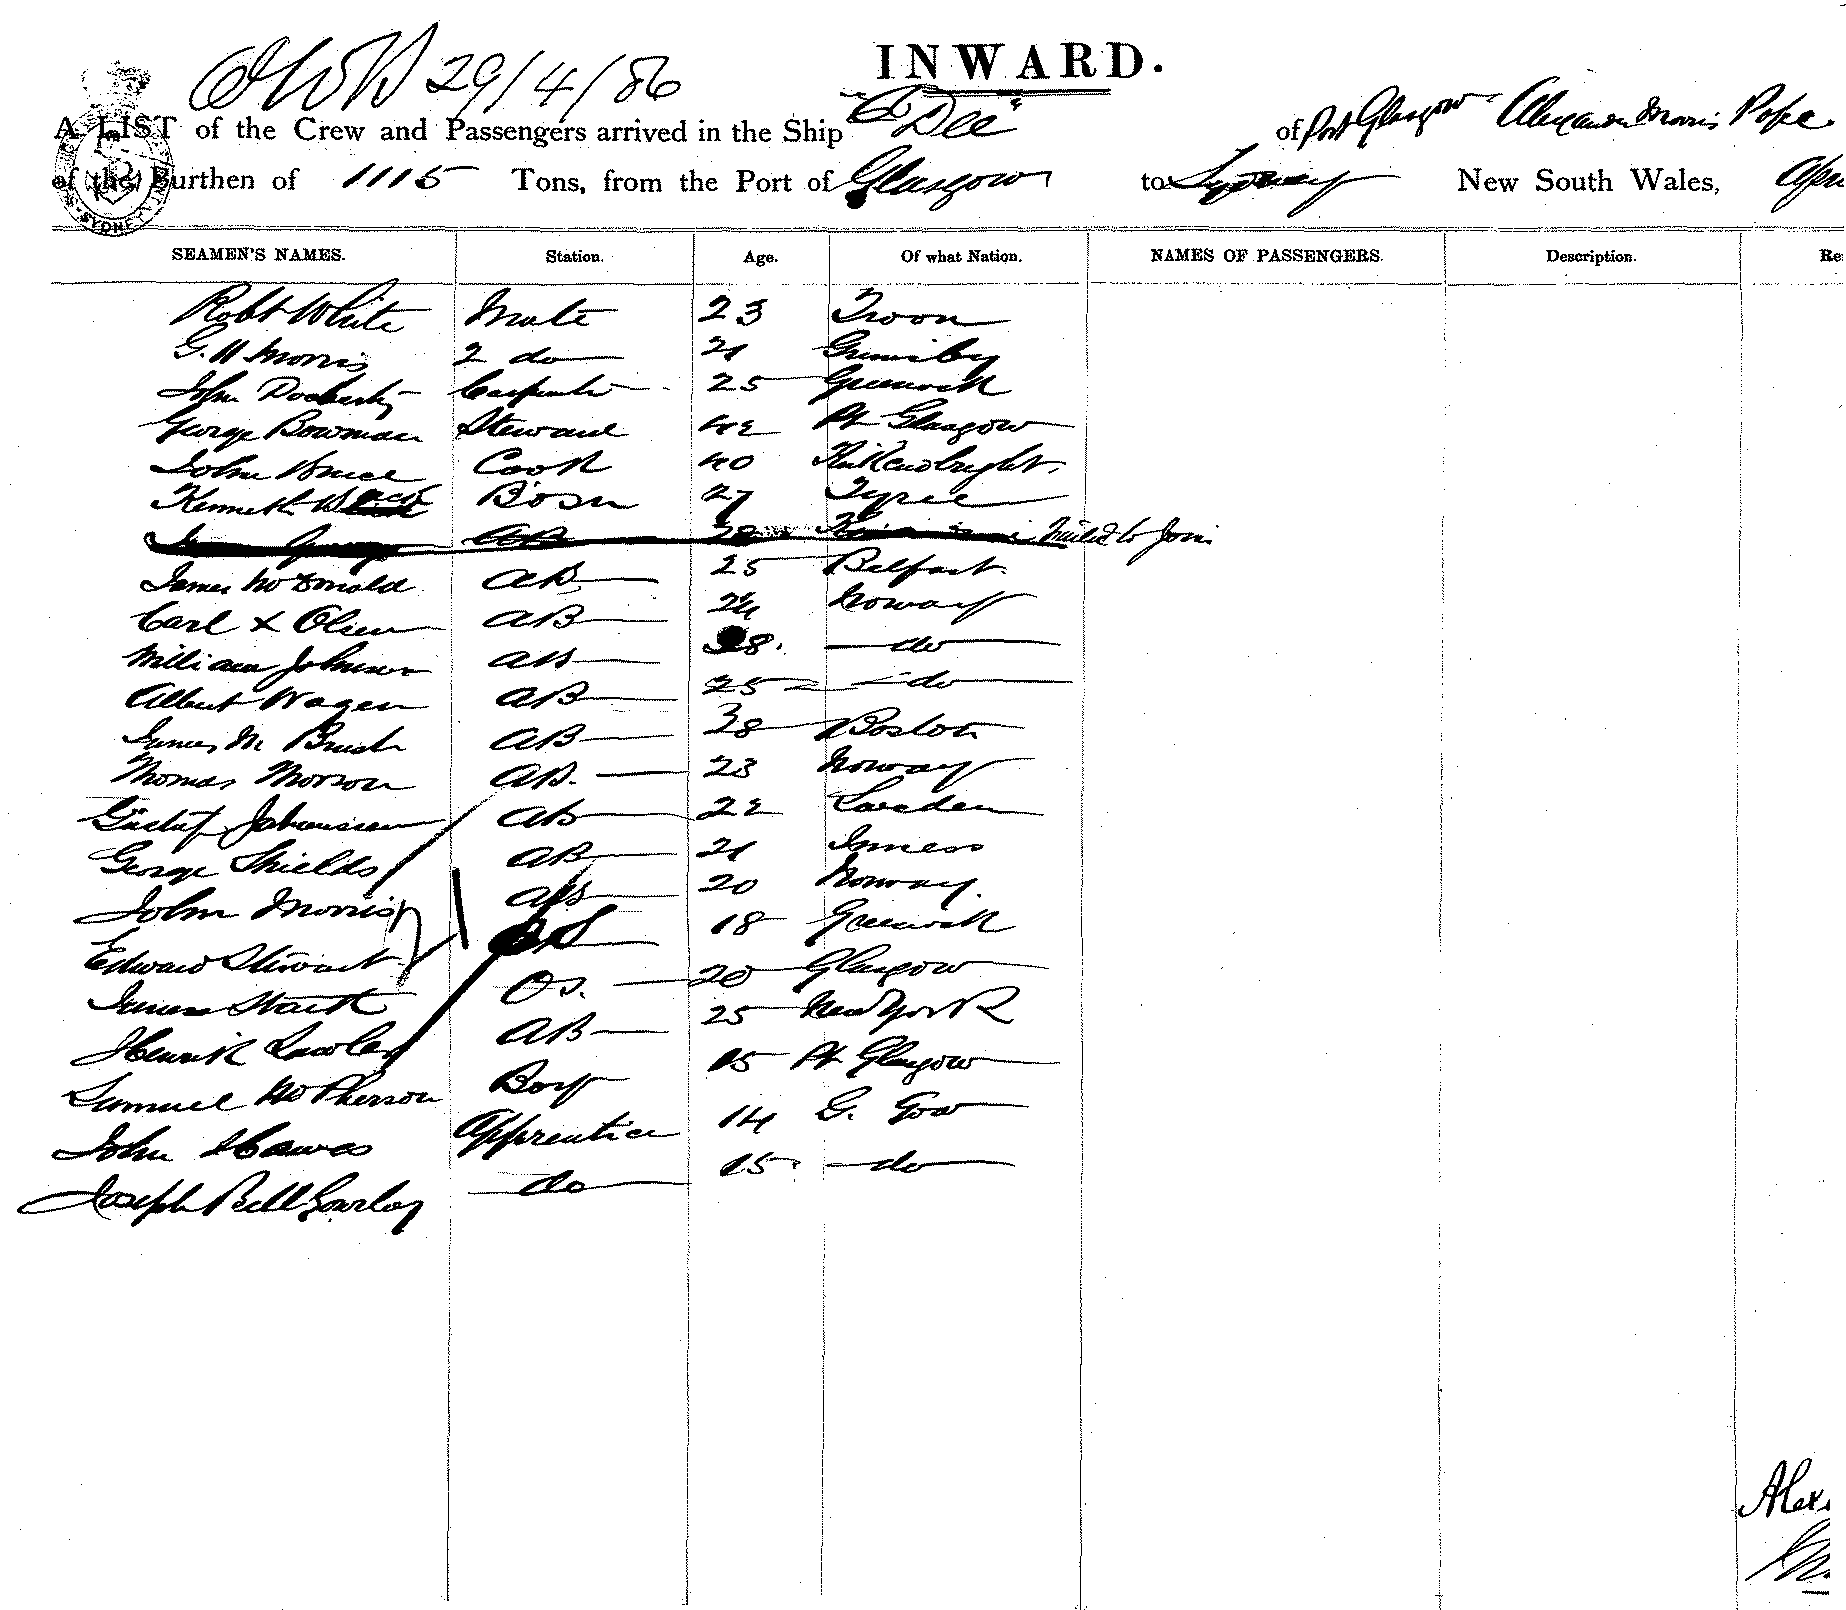 29/4/86
INWARD.
A LIST of the Crew and Passengers arrived in the Ship "Dee" of Port Glasgow Alexander Morris Pope
of the Burthen of 1115 Tons, from the Port of Glasgow to Sydney New South Wales,
SEAMEN'S NAMES. Station. Age. Of what Nation. NAMES OF PASSENGERS. Description.
Robt White Mate 23 Troon
G. H Morris 2 do 21 Grimsby
John Docherty Carpenter 25 Greenock
George Bowman Steward 42 Pt Glasgow
John Bruce Cook 40 Kirkcudbright
Kenneth Bosn 27 Tyree
AB 28 Failed to Join
James McDonald AB 25 Belfast
Carl X Olsen AB 24 Norway
William Johnson AB 38. do
Albert Wagen AB 25 do
James M Brush AB 28 Boston
Thomas Morson AB. 23 Norway
Gustaf Johansson AB 22 
George Shields AB 21 
John Morris AB 20 Norway.
Edward Stewart OS 18 Greenock
James Stark OS. 20 Glasgow
Henrik AB 25 New York
Samuel McPherson Boy 15 Pt Glasgow
John Hawes Apprentice 14 G. Gow
Joseph Bell Gourlay do 15 do